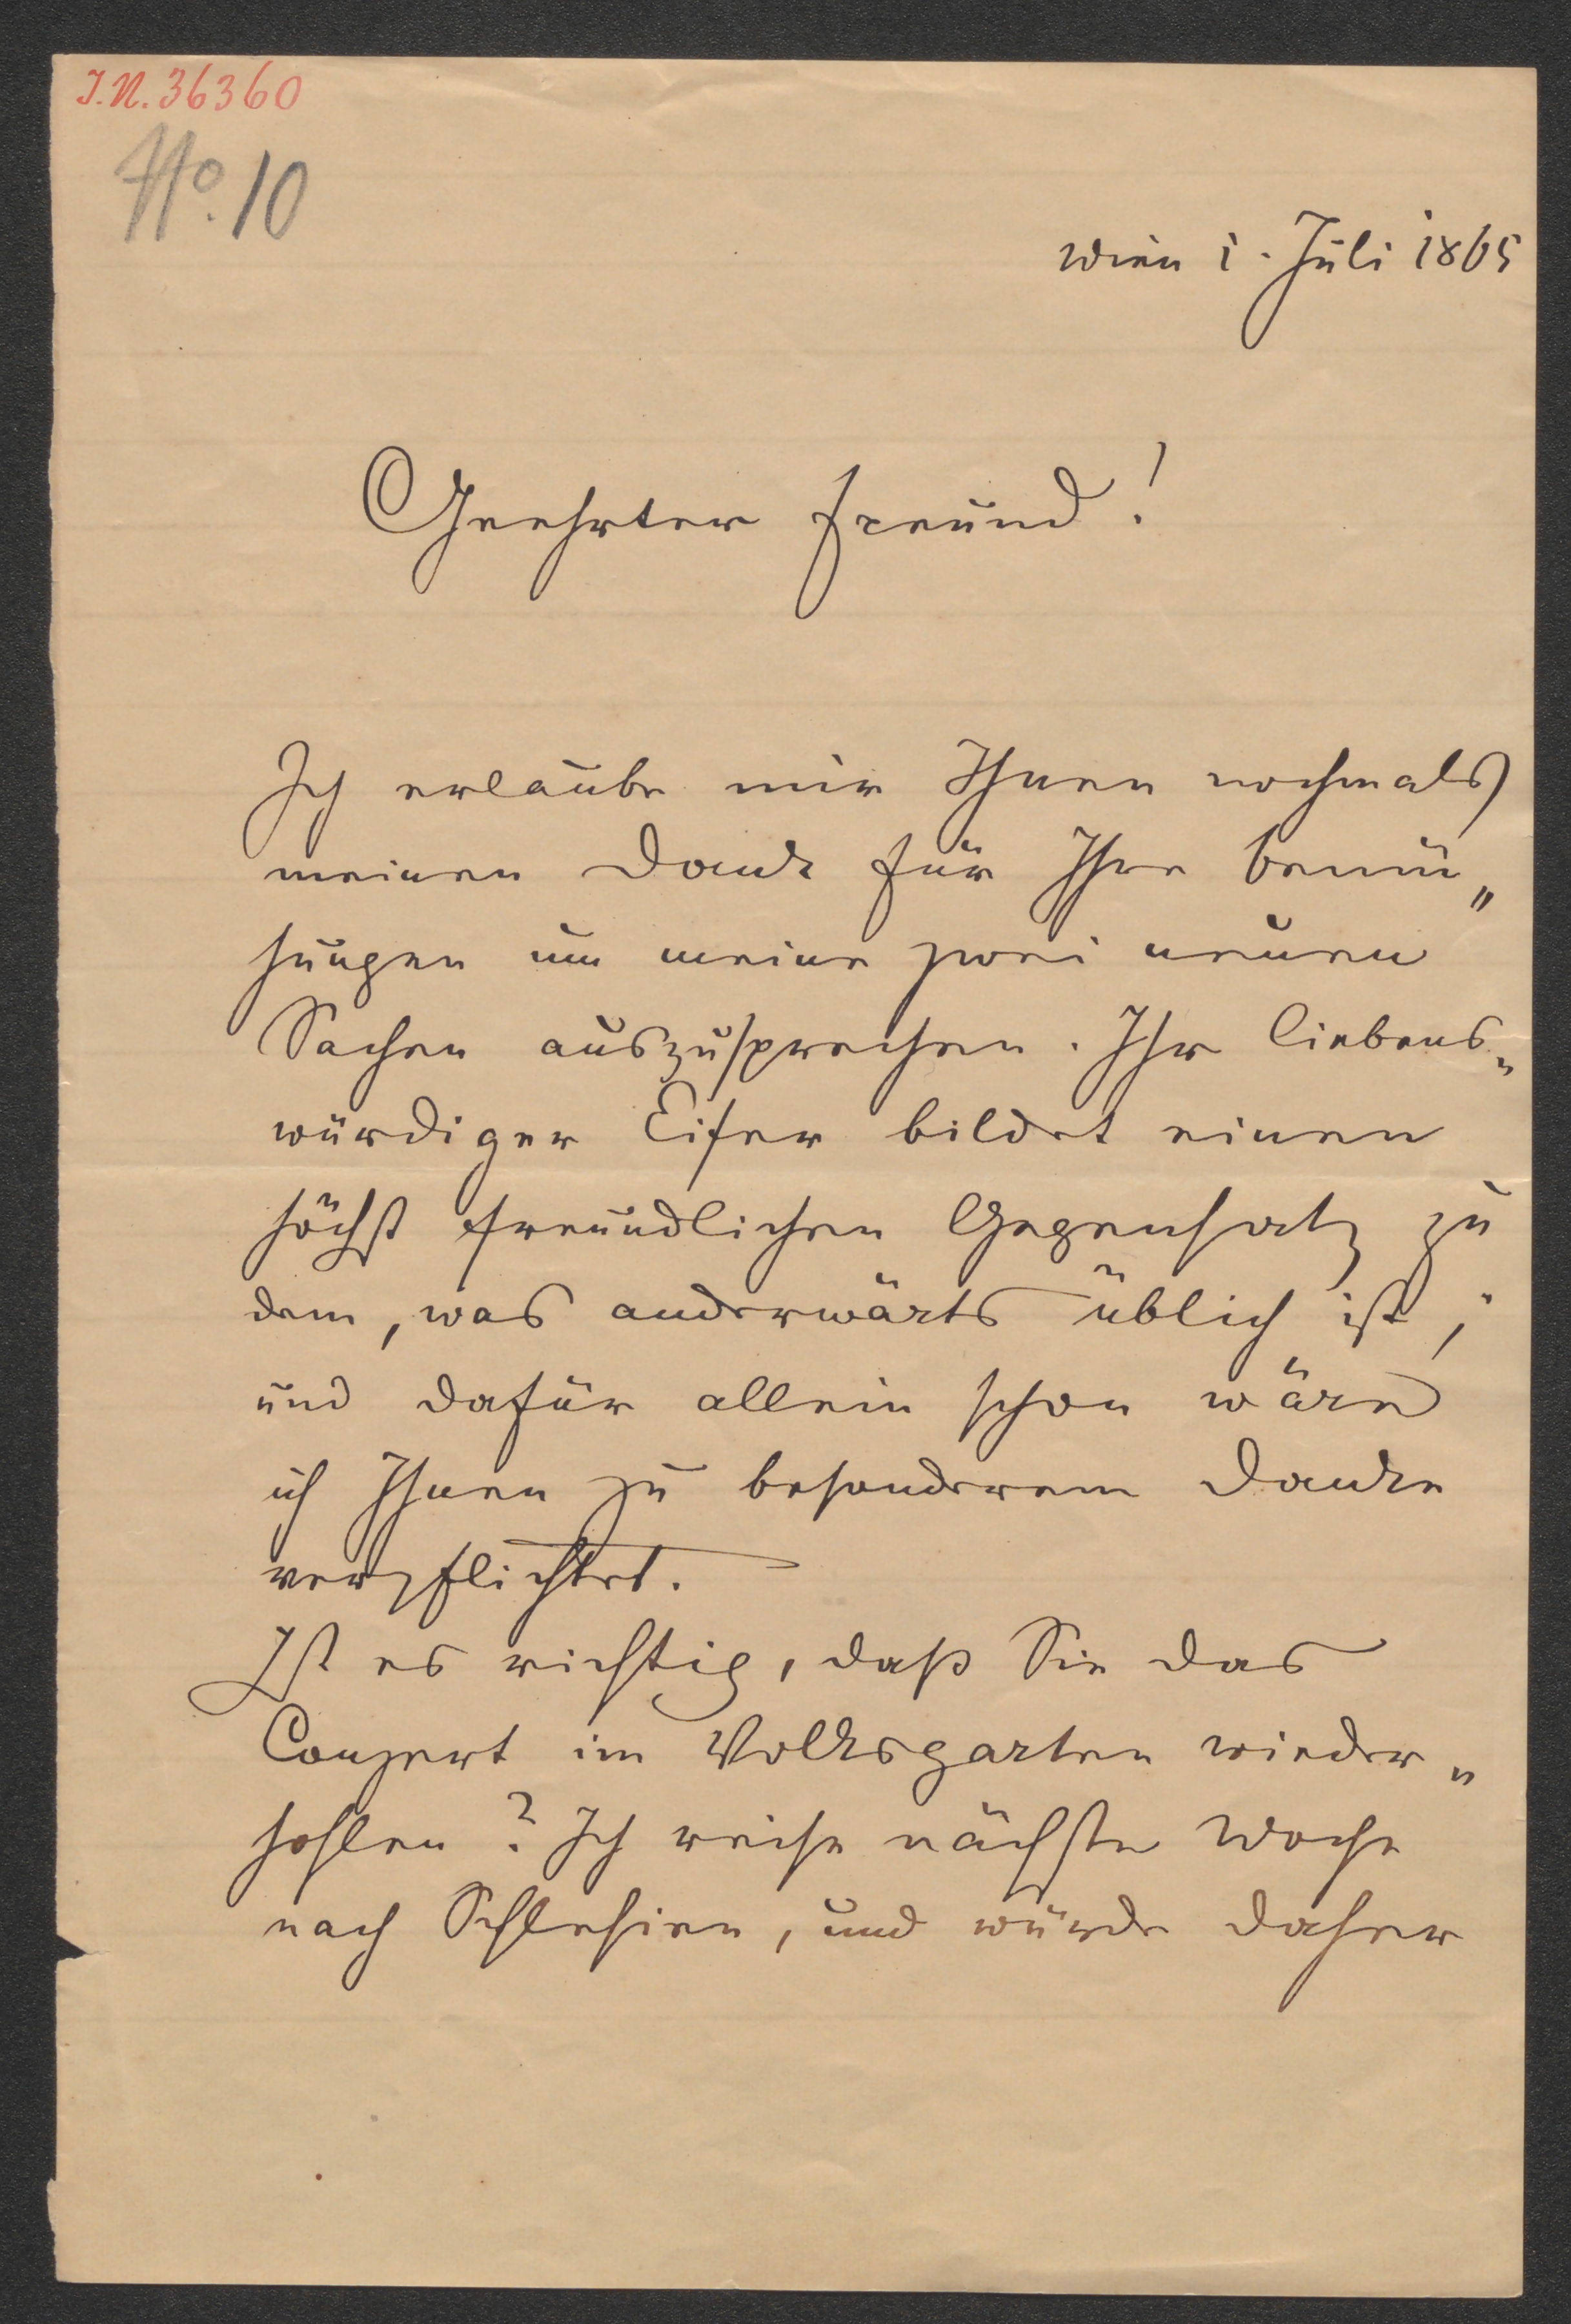 I.N. 36360
No. 10
Wien 1. Juli 1865
Geehrter Freund!
Ich erlaube mir Ihnen nochmals
meinen Dank für Ihre bemü„
hungen um meine zwei neuen
Sachen auszusprechen. Ihr liebens„
würdiger Eifer bildet einen
höchst freundlichen Gegensatz zu
dem, was anderwärts üblich ist;
und dafür allein schon wäre
ich Ihnen zu besonderem Danke
verpflichtet.
Ist es richtig, daß Sie das
Conzert im Volksgarten wieder„
hohlen? Ich reise nächste Woche
nach Schlesien, und würde daher